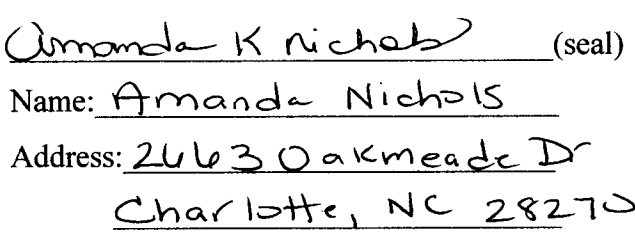 Amanda K Nichols (seal)
Name: Amanda Nichols
Address: 2663 Oakmeade Dr
Charlotte, NC 28270